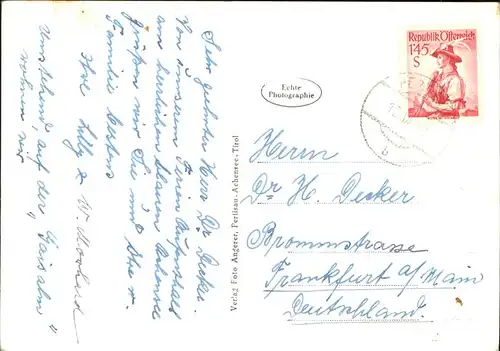 Sehr geehrter Herr Dr. Decker.
Von unserem Ferien Aufenthalt
am herrlichen blauen Achensee
grüßen wir Sie und Ihre w.
Familie bestens
Ihre Lilly &
umstehend, auf der "Gaisalm"
wohnen wir
Verlag Foto Angerer, Pertisau-Achensee-Tirol
Echte
Photographie
Republik Österreich
1·45
S
b
Herrn
Dr H. Decker
Brommstrasse
Frankfurt a/Main
Deutschland.